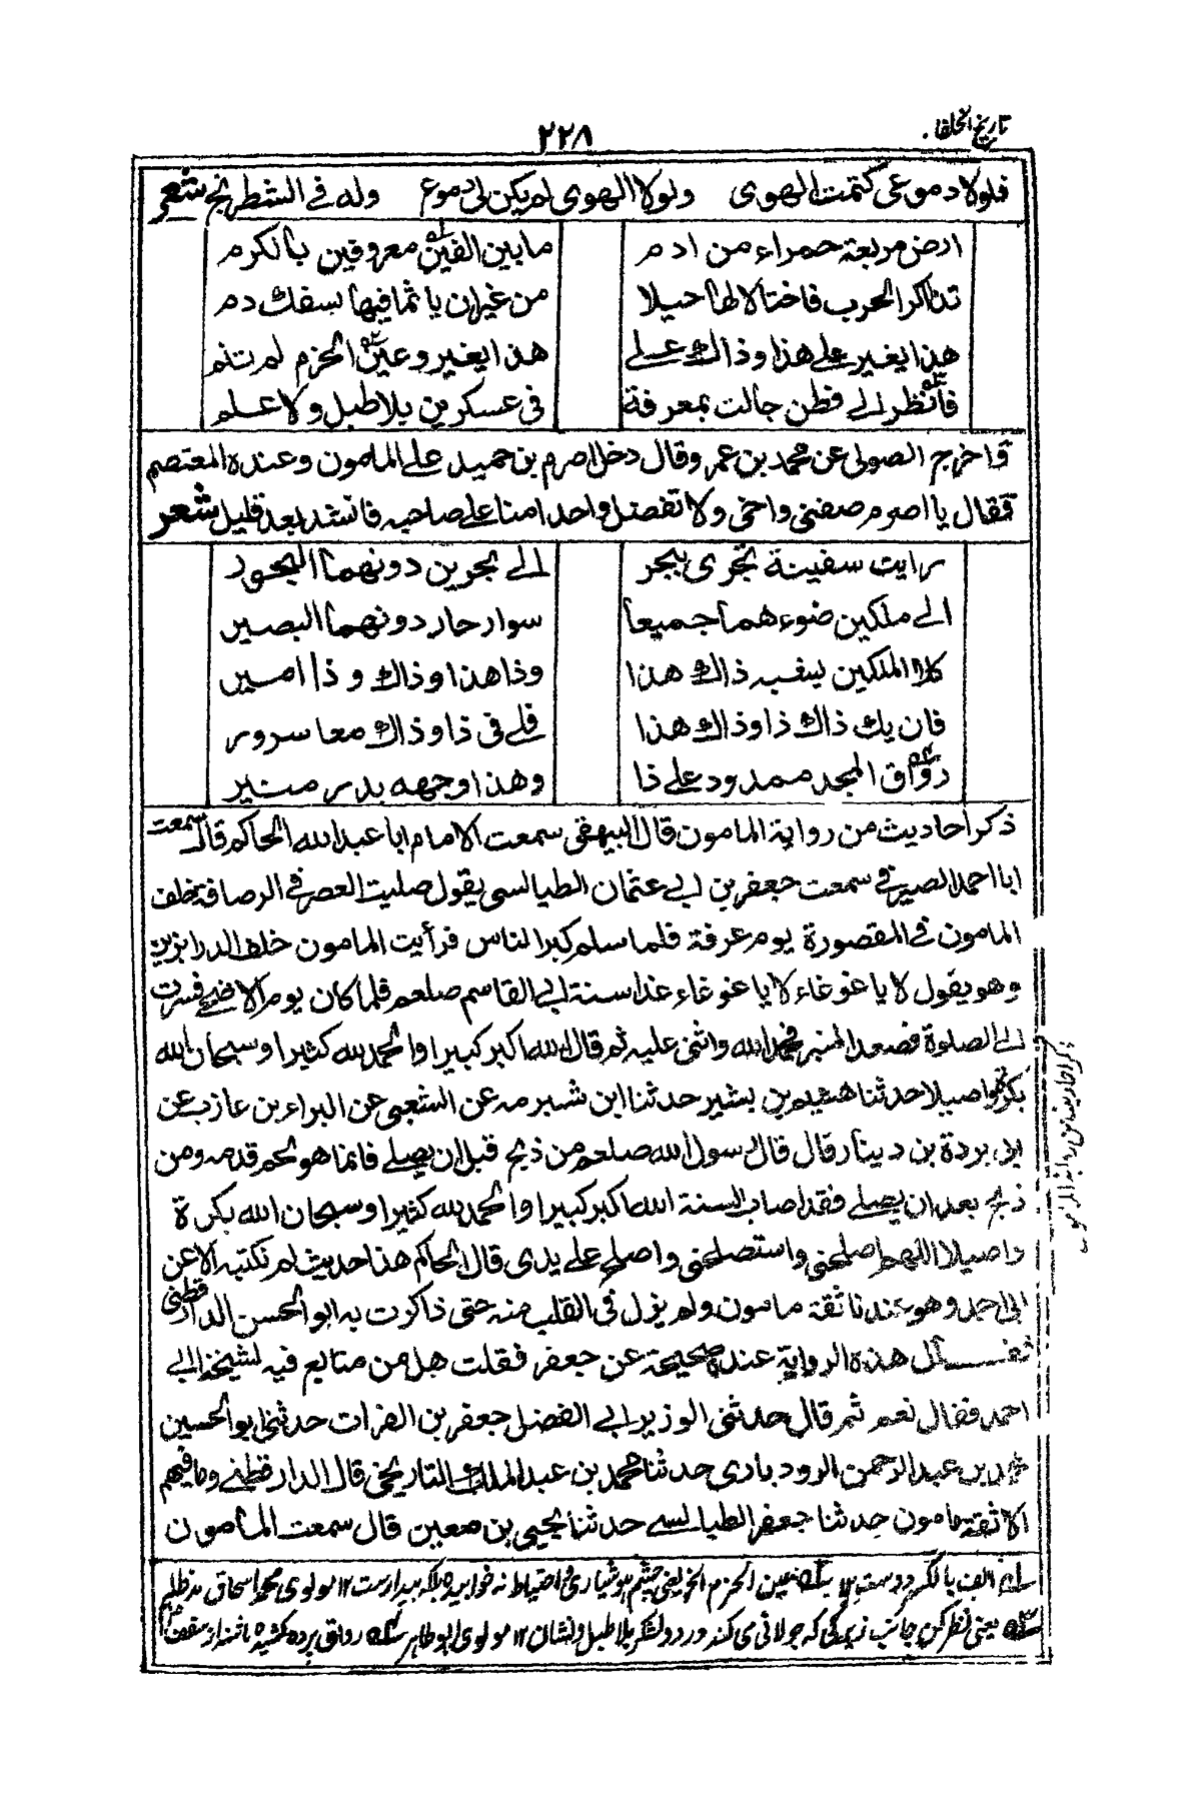 تاريخ الخلفا
٢٢٨
فلولا دموعى كتمت الهوى ولولا الهوى لم يكن لى دموع وله فى الشطرنج شعر
ارض مربعة حمراء من ادم ما بين الفين معروفين بالكرم
تذاكرا الحرب فاحتالا لها حيلا من غير ان ياثما فيها بسفك دم
هذا يغير على هذا وذاك على هذا يغير وعين الحزم لم تنم
فانظر الى فطن جالت بمعرفة فى عسكرين بلا طبل ولا علم
واخرج الصولى عن محمد بن عمر وقال دخل اصرم بن حميد على المامون وعنده المعتصم
فقال يا اصرم صفنى واخى ولا تفضل واحدا منا على صاحبه فانشد بعد قليل شعر
رايت سفينة تجرى ببحر الى بحرين دونهما البحور
الى ملكين ضوءهما جميعا سوار حار دونهما البصير
كلا الملكين يشبه ذاك هذا وذا هذا وذاك وذا امير
فان يك ذاك ذا وذاك هذا فلى فى ذا وذاك معا سرور
رواق المجد ممدود على ذا وهذا وجهه بدر منير
ذكر احاديث من رواية المامون قال البيهقى سمعت الامام ابا عبد الله الحاكم قال سمعت
ابا احمد الصيرفى سمعت جعفر بن ابى عثمان الطيالسى يقول صليت العصر فى الرصافة خلف
المامون فى المقصورة يوم عرفة فلما سلم كبر الناس فرأيت المامون خلف الدرابزين
وهو يقول لا يا غوغاء لا يا غوغاء غدا سنة ابى القاسم صلعم فلما كان يوم الاضحى فسرت
الى الصلوة فصعد المنبر فحمد الله واثنى عليه ثم قال الله اكبر كبيرا والحمد لله كثيرا وسبحان الله
بكرة واصيلا حدثنا هشيم بن بشير حدثنا ابن شبرمه عن الشعبى عن البراء بن عازب عن
ابى بردة بن دينار قال قال رسول الله صلعم من ذبح قبل ان يصلى فانما هو لحم قدمه ومن
ذبح بعد ان يصلى فقد اصاب السنة الله اكبر كبيرا والحمد لله كثيرا وسبحان الله بكرة
واصيلا اللهم اصلحنى واستصلحنى واصلح على يدى قال الحاكم هذا حديث لم نكتبه الا عن
ابى احمد وهو عندنا ثقة مامون ولم يزل فى القلب منه حتى ذاكرت به ابو الحسن الدارقطنى
فقال هذه الرواية عنده صحيحة عن جعفر فقلت هل من متابع فيه لشيخنا ابى
احمد فقال نعم ثم قال حدثنى الوزير ابى الفضل جعفر بن الفرات حدثنى ابو الحسين
محمد بن عبد الرحمن الرودبارى حدثنا محمد بن عبد الملك التاريخى قال الدارقطنى وما فيهم
الا ثقة مامون حدثنا جعفر الطيالسى حدثنا يحيى بن معين قال سمعت المامون
الف بالكسر دوست ١٢ عين الحزم الخ يعنى چشم هوشيارى و احتياط نه خوابيده بلكه بيدارست ١٢ مولوى محمد اسحاق مد ظله
يعنى نظر كن بجانب زيركى كه جولانى مى كند در دو لشكر بلا طبل ونشان ١٢ مولوى ابو طاهر رواق پرده كشيده مانند از سقف
ذكر احاديث من رواية المامون